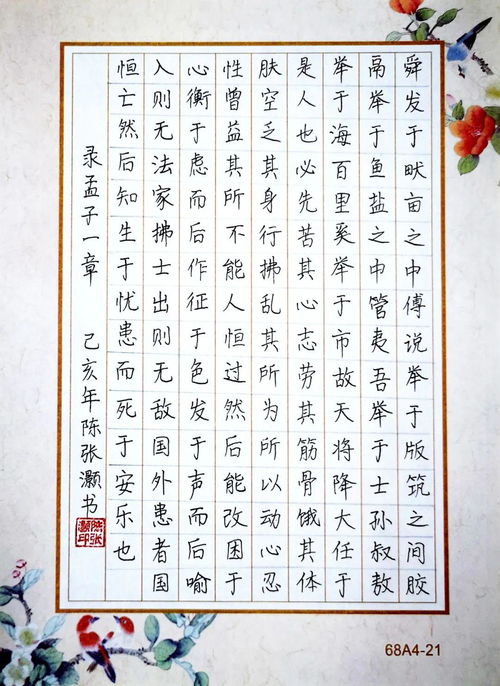 舜发于畎亩之中傅说举于版筑之间胶
鬲举于鱼盐之中管夷吾举于士孙叔敖
举于海百里奚举于市故天将降大任于
是人也必先苦其心志劳其筋骨饿其体
肤空乏其身行拂乱其所为所以动心忍
性曾益其所不能人恒过然后能改困于
心衡于虑而后作征于色发于声而后喻
入则无法家拂士出则无敌国外患者国
恒亡然后知生于忧患而死于安乐也
录孟子一章 己亥年陈张灏书
陈张灏印
68A4-21